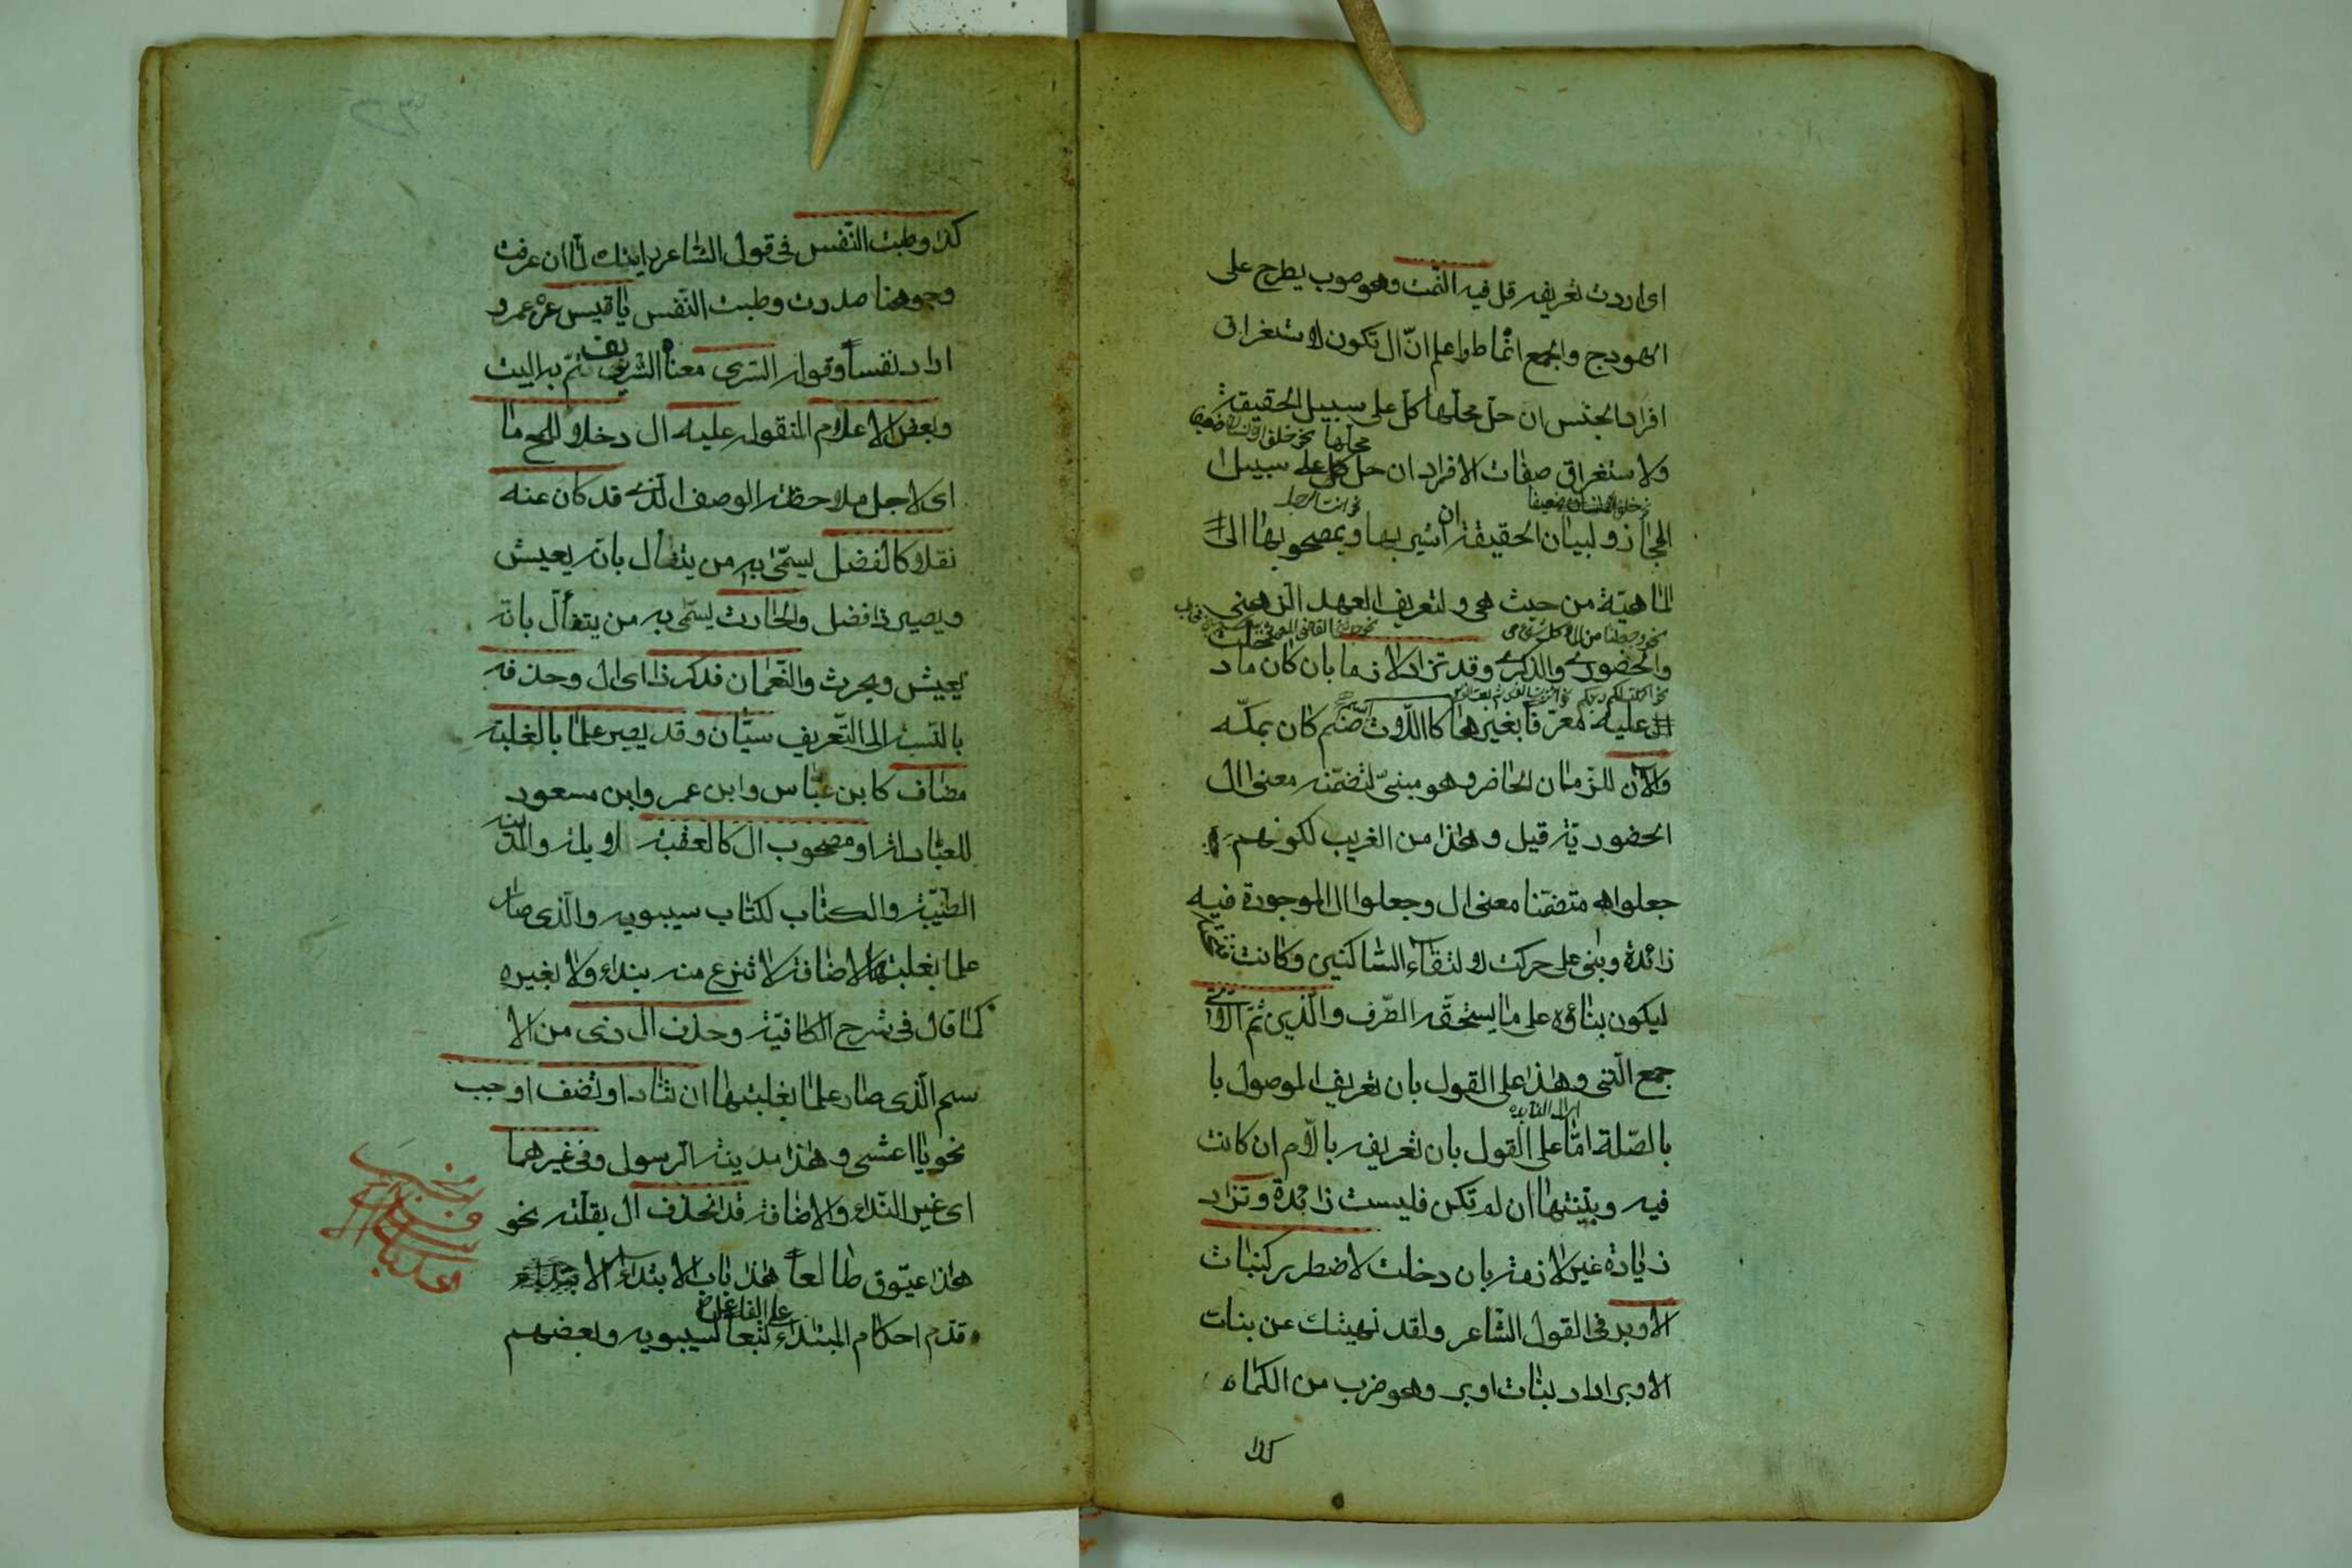 اى اردت تعريفه قل فيه النمت وهو صوب يطرح على
الهودج والجمع انماط واعلم انّ ال تكون لاستغراق
افراد الجنس ان حلّ محلّها كلّ على سبيل الحقيقة
نحو خلق الانسان ضعيفا
ولاستغراق صفات الافراد ان حل محلها كل على سبيل
نحو خلق الانسان ضعيفا نحو انت الرجل
المجاز ولبيان الحقيقة ان اشير بها وبمصحوبها الى
الماهيّة من حيث هى ولتعريف العهد الذهنى
نحو وجعلنا من الماء كل شئ حى
والحضورى والذكرى وقد تزاد لازما بان كان ما دخلت
نحو اكملت لكم دينكم
عليه معرّفا بغيرها كاللّات اسم صنم كان بمكّه
والآن للزّمان الحاضر وهو مبنىّ لتضمّنه معنى ال
الحضورية قيل وهذا من الغريب لكونهم
جعلوه متضمّنا معنى ال وجعلوا ال الموجودة فيه
زائدة وبنى على حركت لالتقاء السّاكنين وكانت فتحة
ليكون بناؤه على ما يستحقّه الظّرف والّذين ثمّ اللّاتى
جمع الّتى وهذا على القول بان تعريف الموصول با
بالصّلة امّا على القول بان تعريفه بالّام ان كانت
فيه وبنيّتها ان لم تكن فليست زائدة وتزاد
زيادة غير لازمة بان دخلت لاضطرر كبنات
الاوبر فى القول الشاعر ولقد نهيتك عن بنات
الاوبر اراد بنات اوبر وهو ضرب من الكماه
كذا
كذا وطبت النّفس فى قول الشاعر رايتك لمّا ان عرفت
وجوهنا صددت وطبت النّفس يا قيس عن عمرو
اراد نفساً وقوله السّرى معناه الشريف ثمّ به البيت
وبعض الاعلام المنقول عليه ال دخلا للمح ما
اى لاجل ملاحظة الوصف الّذى قد كان عنه
نقلا كالفضل يسمّى به من يتفأل بانه يعيش
ويصير ذا فضل والحارث يسمّى به من يتفألّ بانه
يعيش ويحرث والنّعمان فذكر ذا اى ال وحذفه
بالنّسبة الى التّعريف سيّان وقد يصير علما بالغلبة
مضاف كابن عبّاس وابن عمر وابن مسعود
للعبادلة او مصحوب ال كالعقبة لايلة والمدينة
الطيّبة والكتاب لكتاب سيبويه والّذى صار
علما بغلبة الاضافة لا تنزع منه بنداء ولا بغيره
كما قال فى شرح الكافيّة وحذف ال ذى من الا
سم الّذى صار علما بغلبتها ان تناد او تضف اوجب
نحو يا اعشى وهذا مدينة الرسول وفى غيرهما
اى غير النّداء والاضافة قد انحذف ال بقلّة نحو
هذا عيّوق طالعاً هذا باب الابتداء
على الفاعل
قدّم احكام المبتداء تبعاً لسيبويه وبعضهم